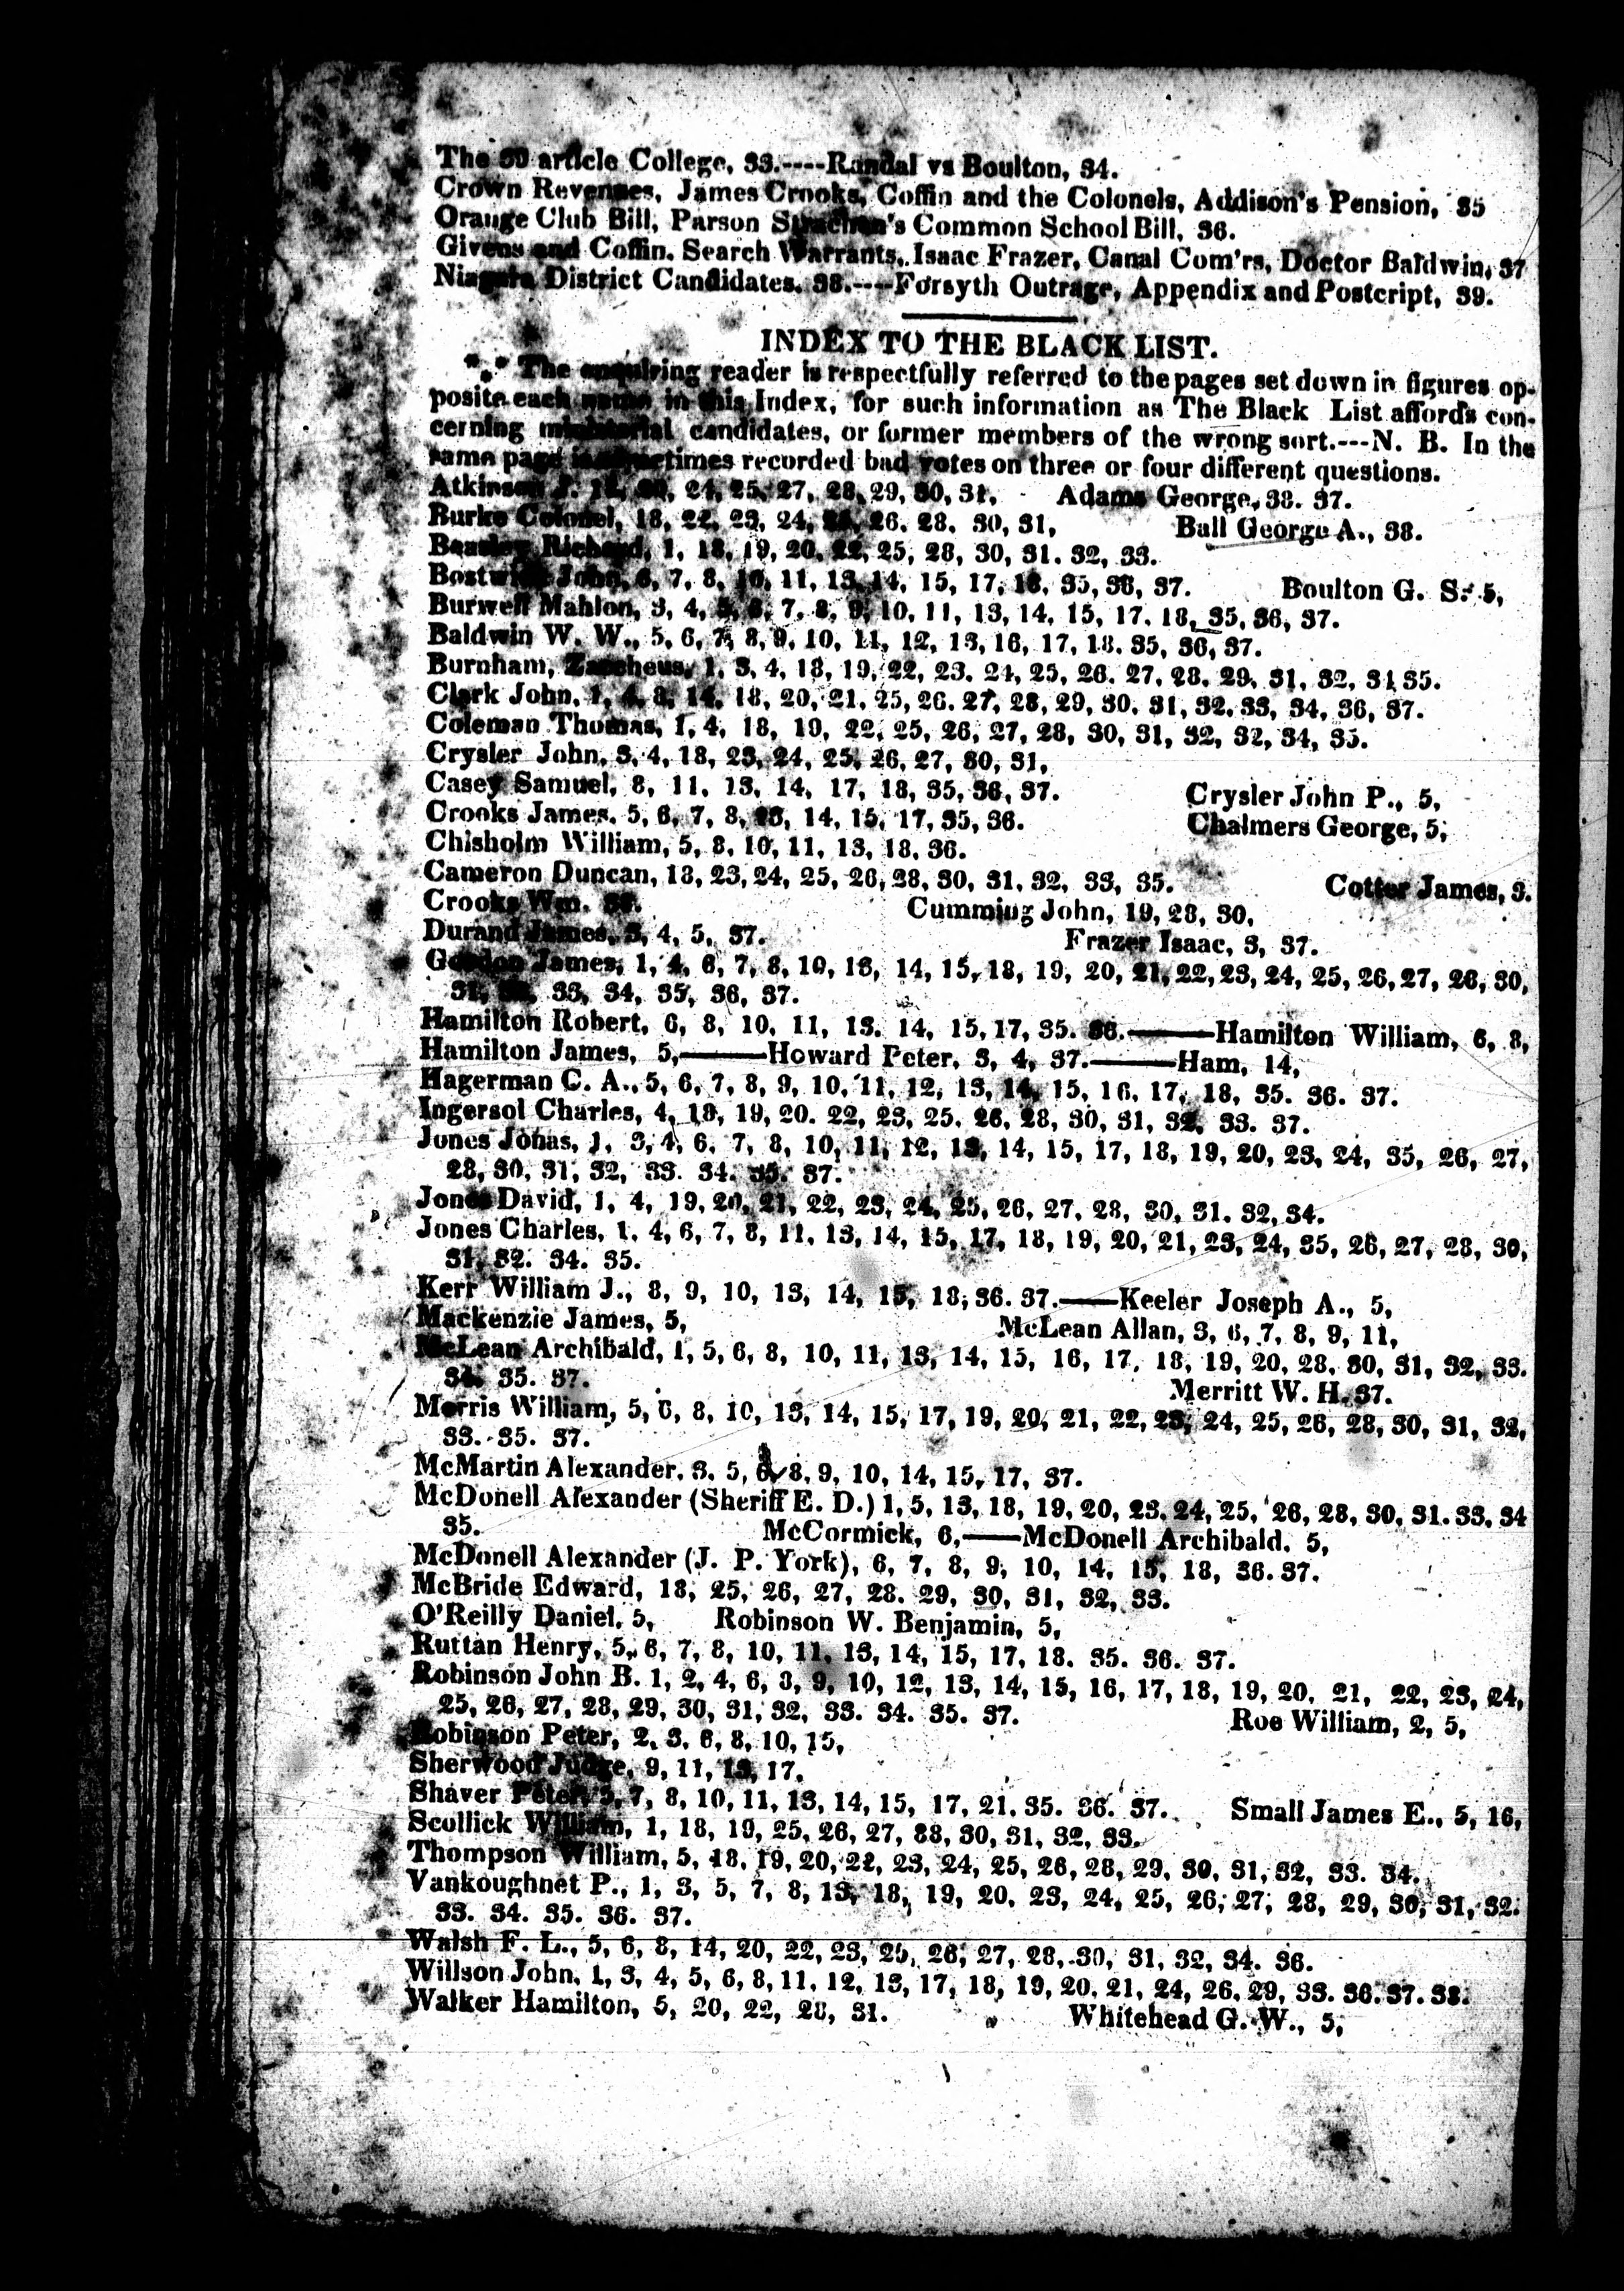 The 39 article College, 33.----Randal vs Boulton, 34.
Crown Revenues, James Crooks, Coffin and the Colonels, Addison's Pension, 35
Orange Club Bill, Parson Strachan's Common School Bill, 36.
Givens and Coffin, Search Warrants, Isaac Frazer, Canal Com'rs, Doctor Baldwin, 37
Niagara District Candidates, 38.----Forsyth Outrage, Appendix and Postcript, 39.
INDEX TO THE BLACK LIST.
*.* The enquiring reader is respectfully referred to the pages set down in figures op-
posite each name in this Index, for such information as The Black List affords con-
cerning ministerial candidates, or former members of the wrong sort.---N. B. In the
same page is sometimes recorded bad votes on three or four different questions.
Atkinson J. 24, 25, 27, 28, 29, 30, 31, Adams George, 38. 37.
Burke Colonel, 18, 22, 23, 24, 26. 28. 30, 31, Ball George A., 38.
Beasley Richard, 1, 18, 19, 20, 22, 25, 28, 30, 31. 32, 33.
Bostwick John, 6, 7, 8, 10, 11, 13, 14, 15, 17, 18, 35, 36, 37. Boulton G. S. 5,
Burwell Mahlon, 3, 4, 5, 6, 7, 8, 9, 10, 11, 13, 14, 15, 17, 18, 35, 36, 37.
Baldwin W. W., 5, 6, 7, 8, 9, 10, 11, 12, 13, 16, 17, 18. 35, 36, 37.
Burnham, Zaccheus, 1, 3, 4, 18, 19, 22, 23. 24, 25, 26. 27, 28. 29, 31, 32, 34 35.
Clark John, 1, 4, 8, 14, 18, 20, 21, 25, 26. 27, 28, 29, 30, 31, 32, 33, 34, 36, 37.
Coleman Thomas, 1, 4, 18, 19, 22, 25, 26, 27, 28, 30, 31, 32, 32, 34, 35.
Crysler John, 3, 4, 18, 23, 24, 25, 26, 27, 30, 31,
Casey Samuel, 8, 11, 13, 14, 17, 18, 35, 36, 37. Crysler John P., 5,
Crooks James, 5, 6, 7, 8, 14, 15, 17, 35, 36. Chalmers George, 5,
Chisholm William, 5, 8, 10, 11, 13, 18, 36.
Cameron Duncan, 18, 23, 24, 25, 26, 28, 30, 31, 32, 33, 35. Cotter James, 3.
Crooks Wm. Cumming John, 19, 28, 30,
Durand James, 3, 4, 5, 37. Frazer Isaac, 3, 37.
Gordon James, 1, 4, 6, 7, 8, 10, 13, 14, 15, 18, 19, 20, 21, 22, 23, 24, 25, 26, 27, 28, 30,
31, 33, 34, 35, 36, 37.
Hamilton Robert, 6, 8, 10, 11, 13. 14, 15, 17, 35. 36.——Hamilton William, 6, 8,
Hamilton James, 5,——Howard Peter, 3, 4, 37.——Ham, 14,
Hagerman C. A., 5, 6, 7, 8, 9, 10, 11, 12, 13, 14, 15, 16, 17, 18, 35. 36. 37.
Ingersol Charles, 4, 18, 19, 20. 22, 23, 25. 26, 28, 30, 31, 32, 33. 37.
Jones Jonas, 1, 3, 4, 6, 7, 8, 10, 11, 12, 13, 14, 15, 17, 18, 19, 20, 23, 24, 35, 26, 27,
28, 30, 31, 32, 33. 34. 35. 37.
Jones David, 1, 4, 19, 20, 21, 22, 23, 24, 25, 26, 27, 28, 30, 31. 32, 34.
Jones Charles, 1, 4, 6, 7, 8, 11, 13, 14, 15, 17, 18, 19, 20, 21, 23, 24, 35, 26, 27, 28, 30,
31, 32. 34. 35.
Kerr William J., 8, 9, 10, 13, 14, 15, 18, 36. 37.——Keeler Joseph A., 5,
Mackenzie James, 5, McLean Allan, 3, 6, 7, 8, 9, 11,
McLean Archibald, 1, 5, 6, 8, 10, 11, 13, 14, 15, 16, 17, 18, 19, 20, 28, 30, 31, 32, 33.
34. 35. 37. Merritt W. H. 37.
Morris William, 5, 6, 8, 10, 13, 14, 15, 17, 19, 20, 21, 22, 23, 24, 25, 26, 28, 30, 31, 32,
33. 35. 37.
McMartin Alexander, 3, 5, 6, 8, 9, 10, 14, 15, 17, 37.
McDonell Alexander (Sheriff E. D.) 1, 5, 13, 18, 19, 20, 23, 24, 25, 26, 28, 30, 31. 33. 34
35. McCormick, 6,——McDonell Archibald, 5,
McDonell Alexander (J. P. York), 6, 7, 8, 9, 10, 14, 15, 18, 36. 37.
McBride Edward, 18, 25, 26, 27, 28. 29, 30, 31, 32, 33.
O'Reilly Daniel, 5, Robinson W. Benjamin, 5,
Ruttan Henry, 5, 6, 7, 8, 10, 11, 13, 14, 15, 17, 18. 35. 36. 37.
Robinson John B. 1, 2, 4, 6, 8, 9, 10, 12, 13, 14, 15, 16, 17, 18, 19, 20, 21, 22, 23, 24,
25, 26, 27, 28, 29, 30, 31, 32, 33. 34. 35. 37. Roe William, 2, 5,
Robinson Peter, 2, 3, 6, 8, 10, 15,
Sherwood Judge, 9, 11, 13, 17.
Shaver Peter, 5, 7, 8, 10, 11, 13, 14, 15, 17, 21. 35. 36. 37. Small James E., 5, 16,
Scollick William, 1, 18, 19, 25, 26, 27, 28, 30, 31, 32, 33.
Thompson William, 5, 18, 19, 20, 22, 23, 24, 25, 26, 28, 29, 30, 31, 32, 33. 34.
Vankoughnet P., 1, 3, 5, 7, 8, 13, 18, 19, 20, 23, 24, 25, 26, 27, 28, 29, 30, 31, 32.
33. 34. 35. 36. 37.
Walsh F. L., 5, 6, 8, 14, 20, 22, 23, 25, 26, 27, 28, 30, 31, 32, 34. 36.
Willson John, 1, 3, 4, 5, 6, 8, 11, 12, 13, 17, 18, 19, 20, 21, 24, 26, 29, 33. 36. 37. 38.
Walker Hamilton, 5, 20, 22, 28, 31. Whitehead G. W., 5,